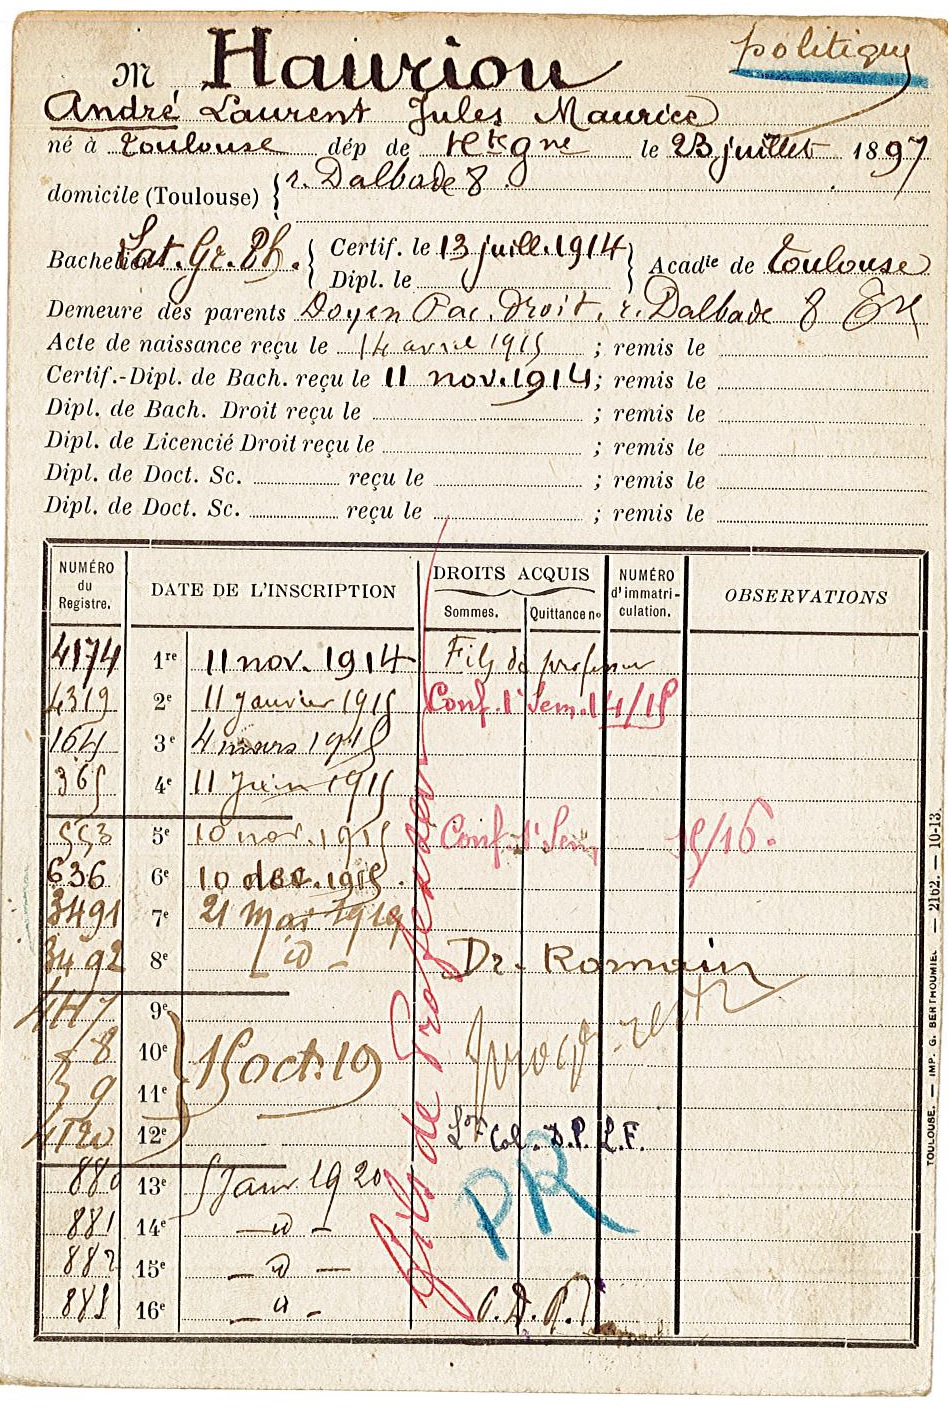 politique
M Hauriou
André Laurent Jules Maurice
né à Toulouse dép de Hte Gne le 23 juillet 1897
domicile (Toulouse) { r. Dalbade 8
Bachelier Lat. Gr. Ph. { Certif. le 13 juill. 1914 } Acadie de Toulouse
Dipl. le
Demeure des parents Doyen Fac. Droit, r. Dalbade 8
Acte de naissance reçu le 14 avril 1915 ; remis le
Certif.-Dipl. de Bach. reçu le 11 nov. 1914 ; remis le
Dipl. de Bach. Droit reçu le ; remis le
Dipl. de Licencié Droit reçu le ; remis le
Dipl. de Doct. Sc. reçu le ; remis le
Dipl. de Doct. Sc. reçu le ; remis le
NUMÉRO du Registre. DATE DE L'INSCRIPTION DROITS ACQUIS Sommes. Quittance no NUMÉRO d'immatri-culation. OBSERVATIONS
4174 1re 11 nov. 1914 Fils de professeur
4319 2e 11 janvier 1915 Conf. 1r Sem. 14/15
164 3e 4 mars 1915
365 4e 11 juin 1915
553 5e 10 nov. 1915 Conf. 1r Sem 15/16.
636 6e 10 déc. 1915.
3491 7e 21 Mai 1919
3492 8e - id - Dr. Romain
4117 9e
18 10e 15 oct. 19
19 11e
4120 12e Lon Col. D.P. L.F.
880 13e 5 Janv. 1920 PR
881 14e - id -
882 15e - id -
883 16e - id -
Fils de Professeur
TOULOUSE. — IMP. G. BERTHOUMIEU — 2162. — 10-13